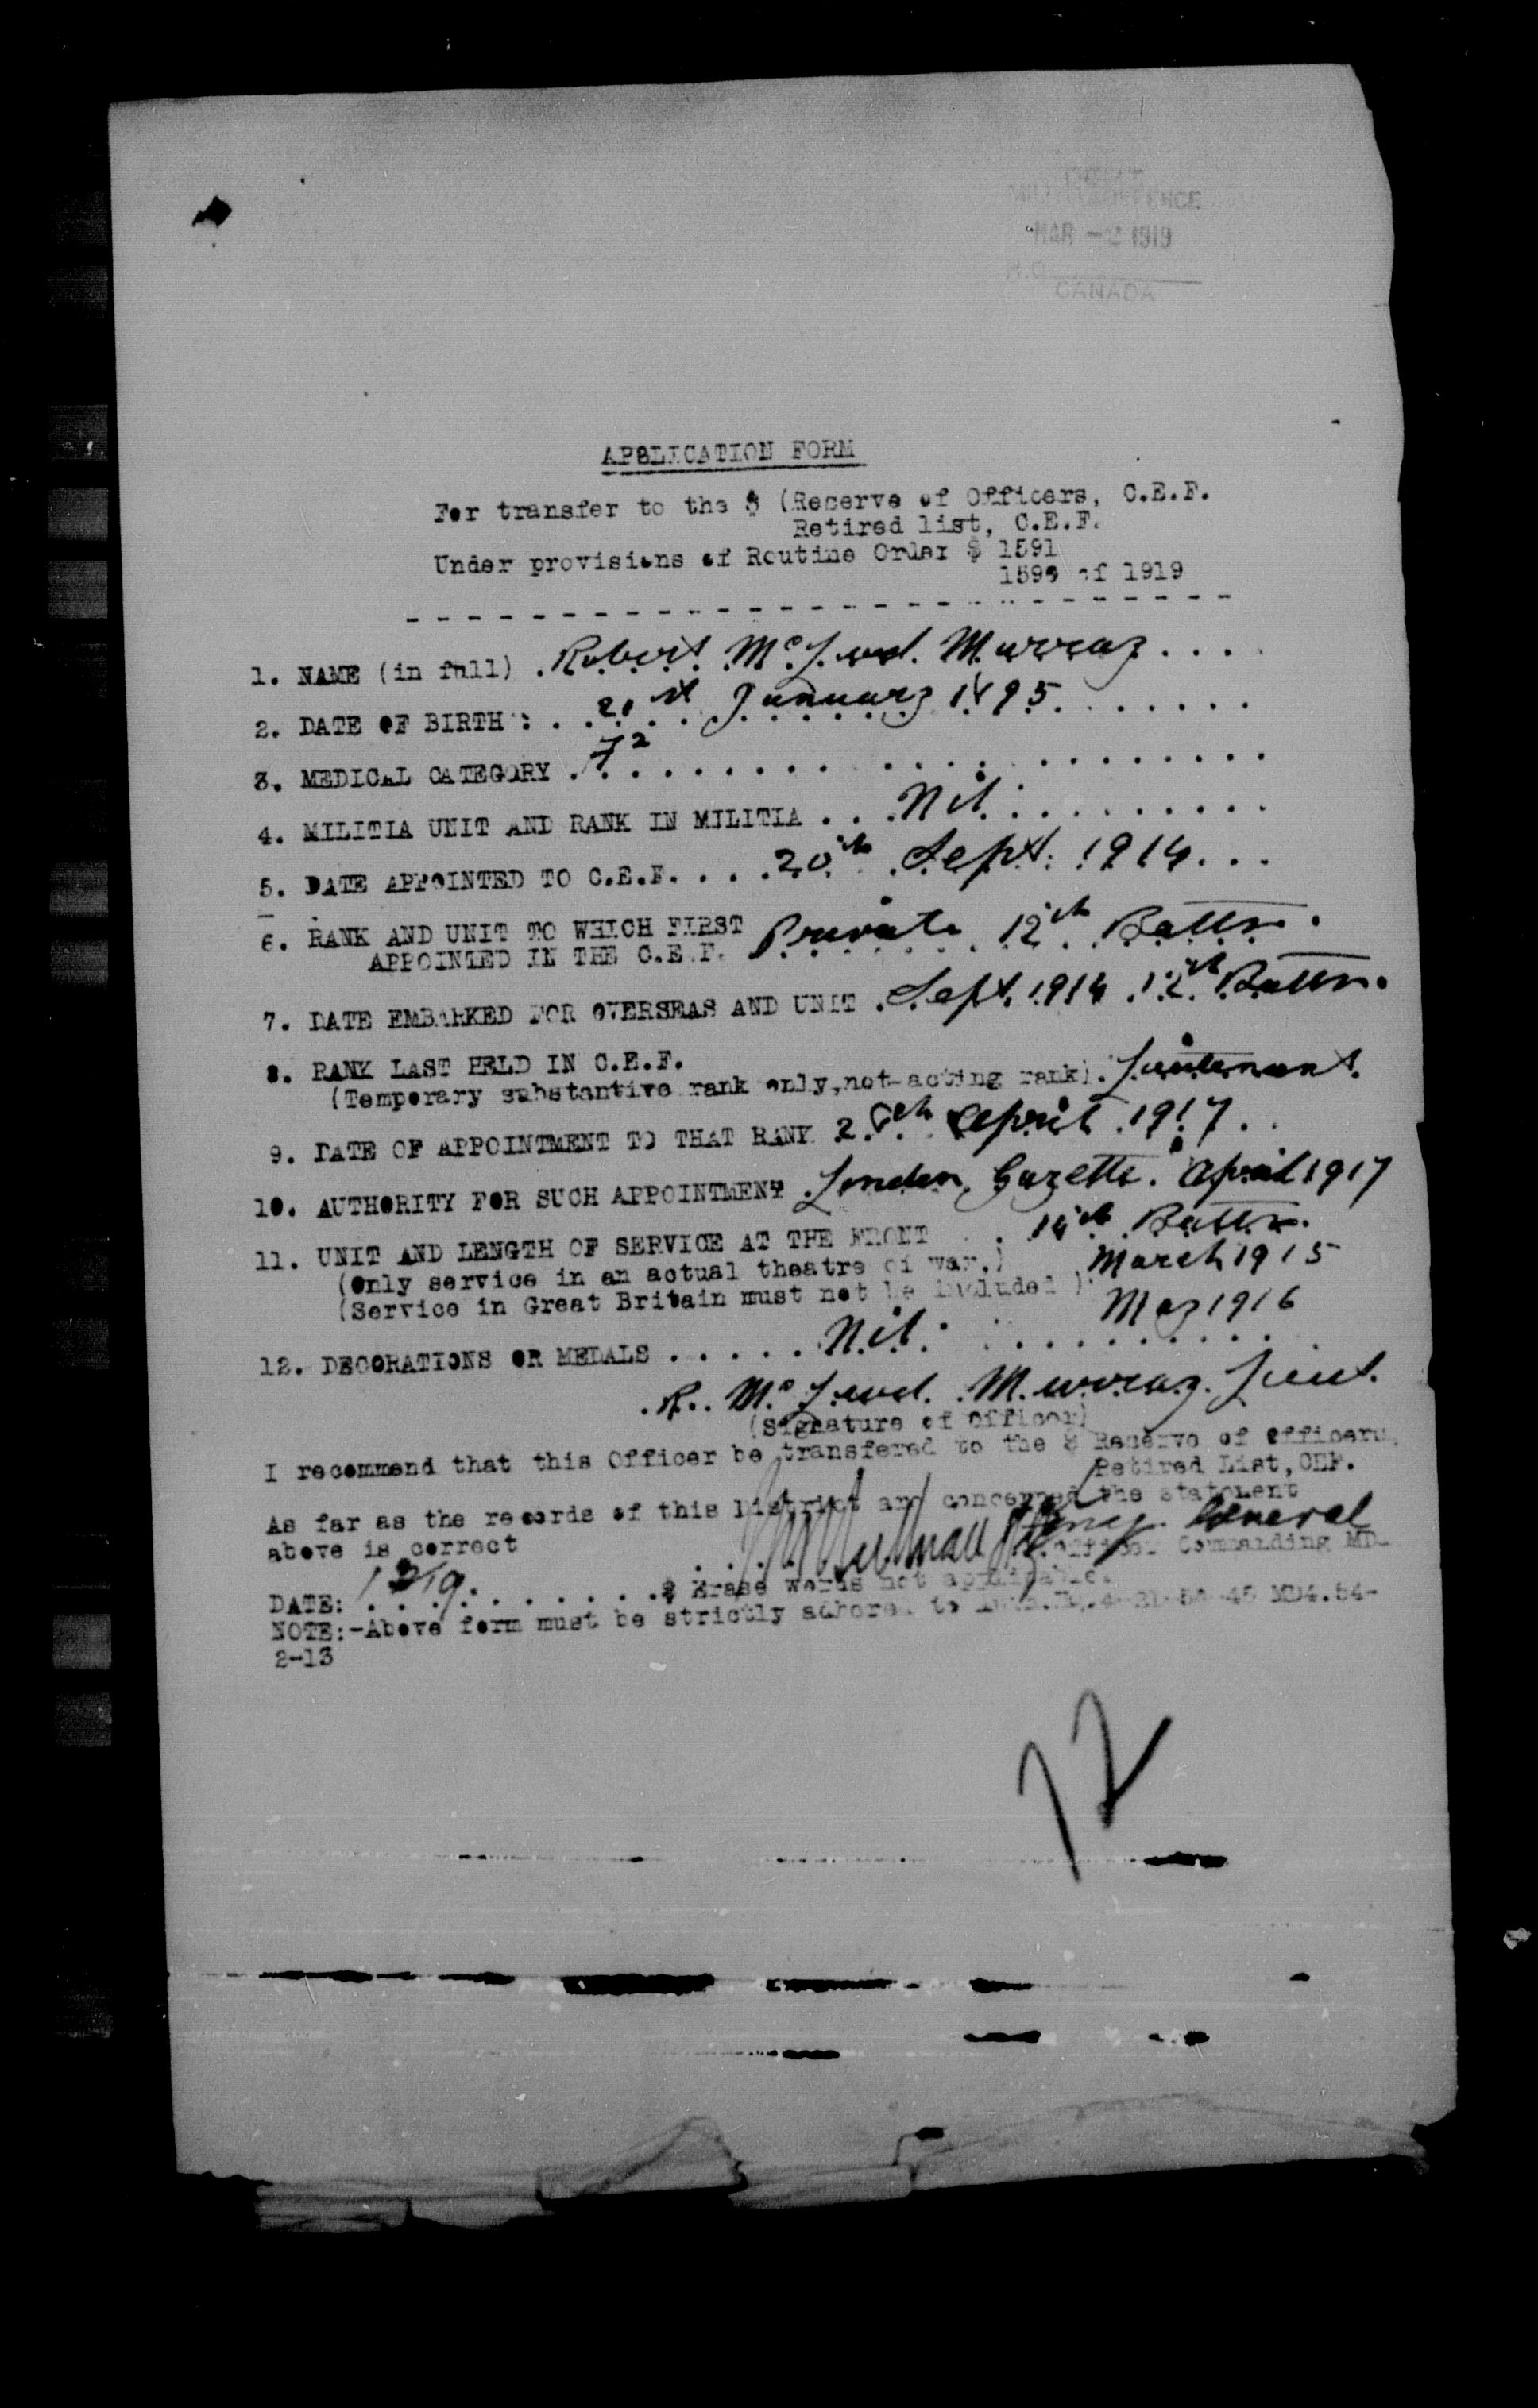 DEPT.
MILITIA & DEFENCE
MAR - 1919
H.Q.
CANADA
APPLICATION FORM
For transfer to the $ (Reserve of Officers, C.E.F.
Retired list, C.E.F.
Under provisions of Routine Order $ 1591
1595 of 1919
1. NAME (in full) . Robert McLeod Murray . . . .
2. DATE OF BIRTH : . . 21st January 1895 . . . . . . .
3. MEDICAL CATEGORY .
4. MILITIA UNIT AND RANK IN MILITIA . . . Nil . . . . . . . . .
5. DATE APPOINTED TO C.E.F. . . . 20th Sept. 1914 . . .
6. RANK AND UNIT TO WHICH FIRST
APPOINTED IN THE C.E.F. Private 12th Battn.
7. DATE EMBARKED FOR OVERSEAS AND UNIT . Sept. 1914 12th Battn.
8. RANK LAST HELD IN C.E.F.
(Temporary substantive rank only, not acting rank). Lieutenant.
9. DATE OF APPOINTMENT TO THAT RANK April 1917 . .
10. AUTHORITY FOR SUCH APPOINTMENT . London Gazette. April 1917
11. UNIT AND LENGTH OF SERVICE AT THE FRONT . . 14th Battn.
(Only service in an actual theatre of war.) March 1915
(Service in Great Britain must not be included ) May 1916
12. DECORATIONS OR MEDALS . . . . . Nil . . . . . . . . . .
. R. McLeod Murray Lieut.
(Signature of Officer)
I recommend that this Officer be transfered to the $ Reserve of Officers
Retired List, CEF.
As far as the records of this District are concerned the statement
above is correct General
Officer Commanding MD-
DATE: . . . . . . . . . $ Erase words not applicable.
NOTE:-Above form must be strictly adhored to MD4.54-
2-13